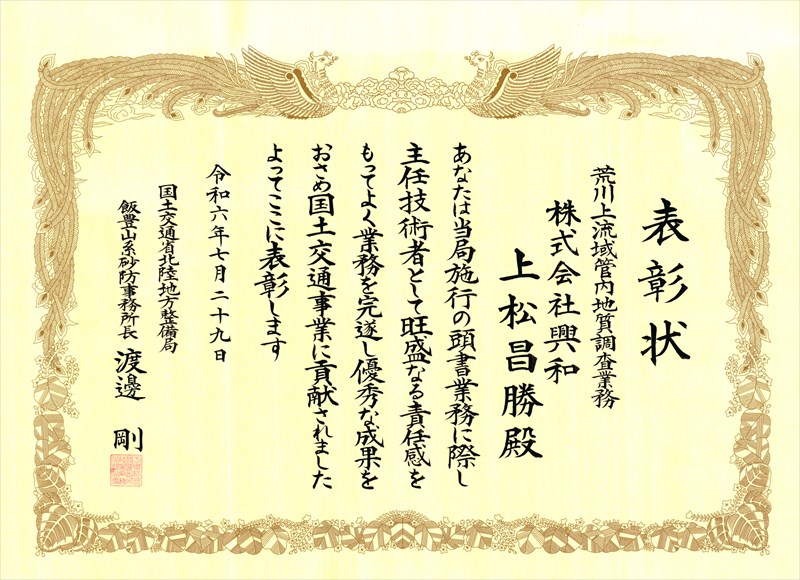 表彰状
荒川上流域管内地質調査業務
株式会社興和
上松昌勝殿
あなたは当局施行の頭書業務に際し
主任技術者として旺盛なる責任感を
もってよく業務を完遂し優秀な成果を
おさめ国土交通事業に貢献されました
よってここに表彰します
令和六年七月二十九日
国土交通省北陸地方整備局
飯豊山系砂防事務所長 渡邊 剛